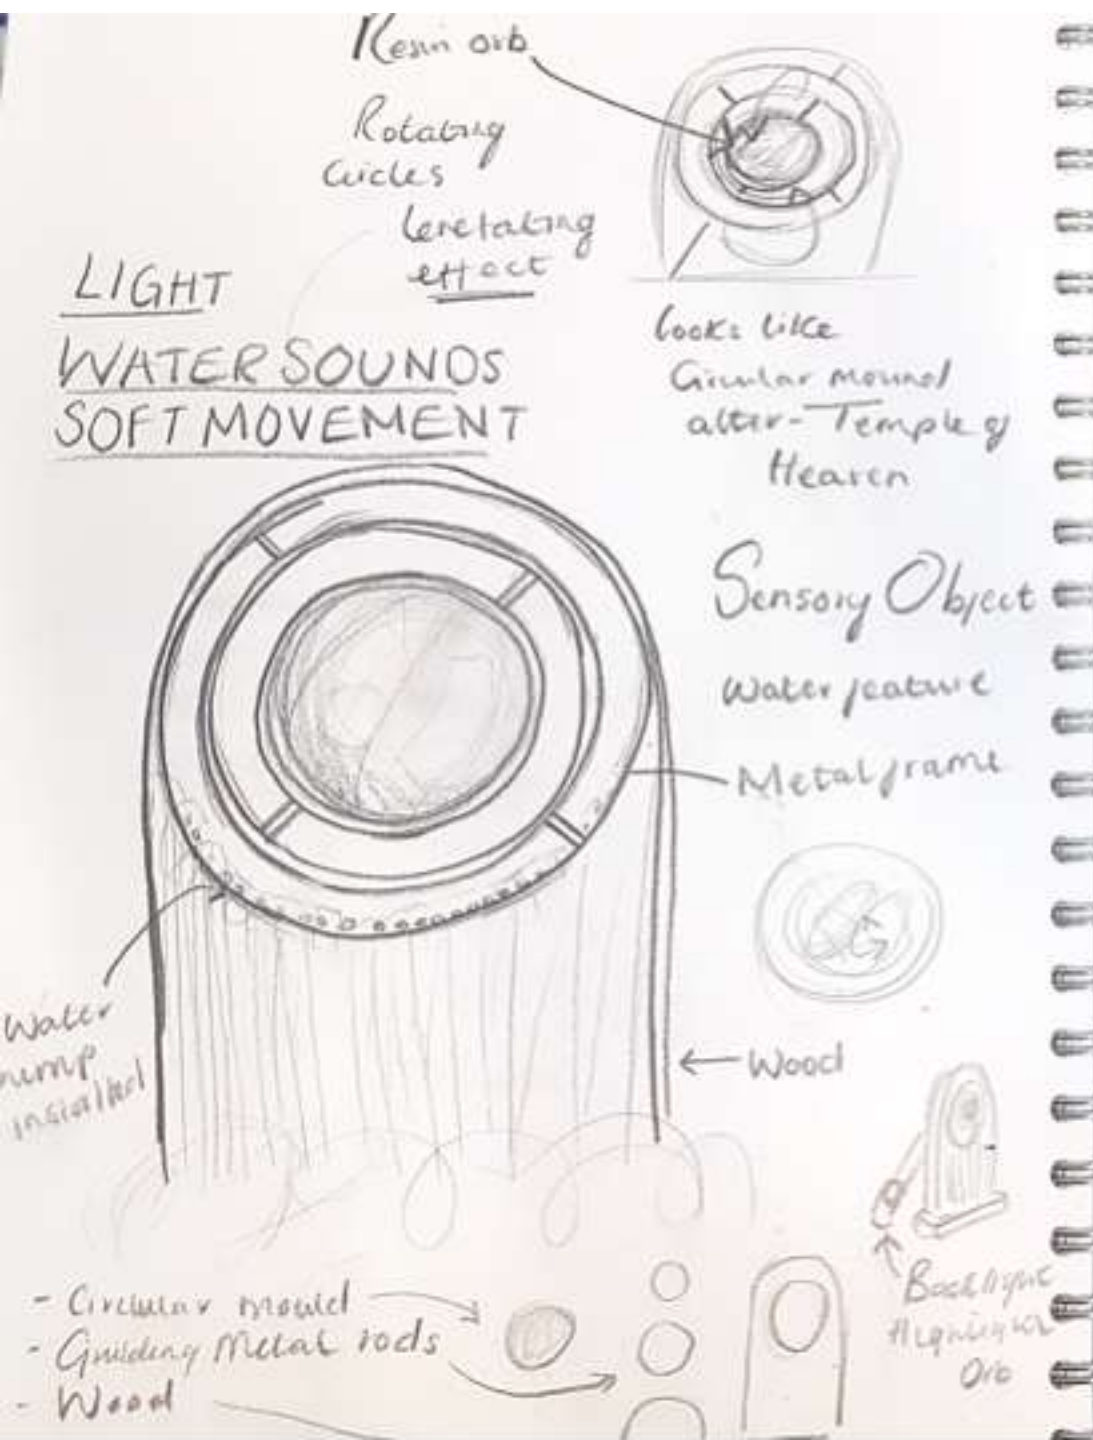 Resin orb
Rotating
Circles
Levetating
effect
LIGHT
WATER SOUNDS
SOFT MOVEMENT
looks like
Circular mound
alter - Temple of
Heaven
Sensory Object
Water feature
Metal frame
Water
pump
installed
Wood
Backlight
Orb
- Circular mould
- Guiding Metal rods
- Wood